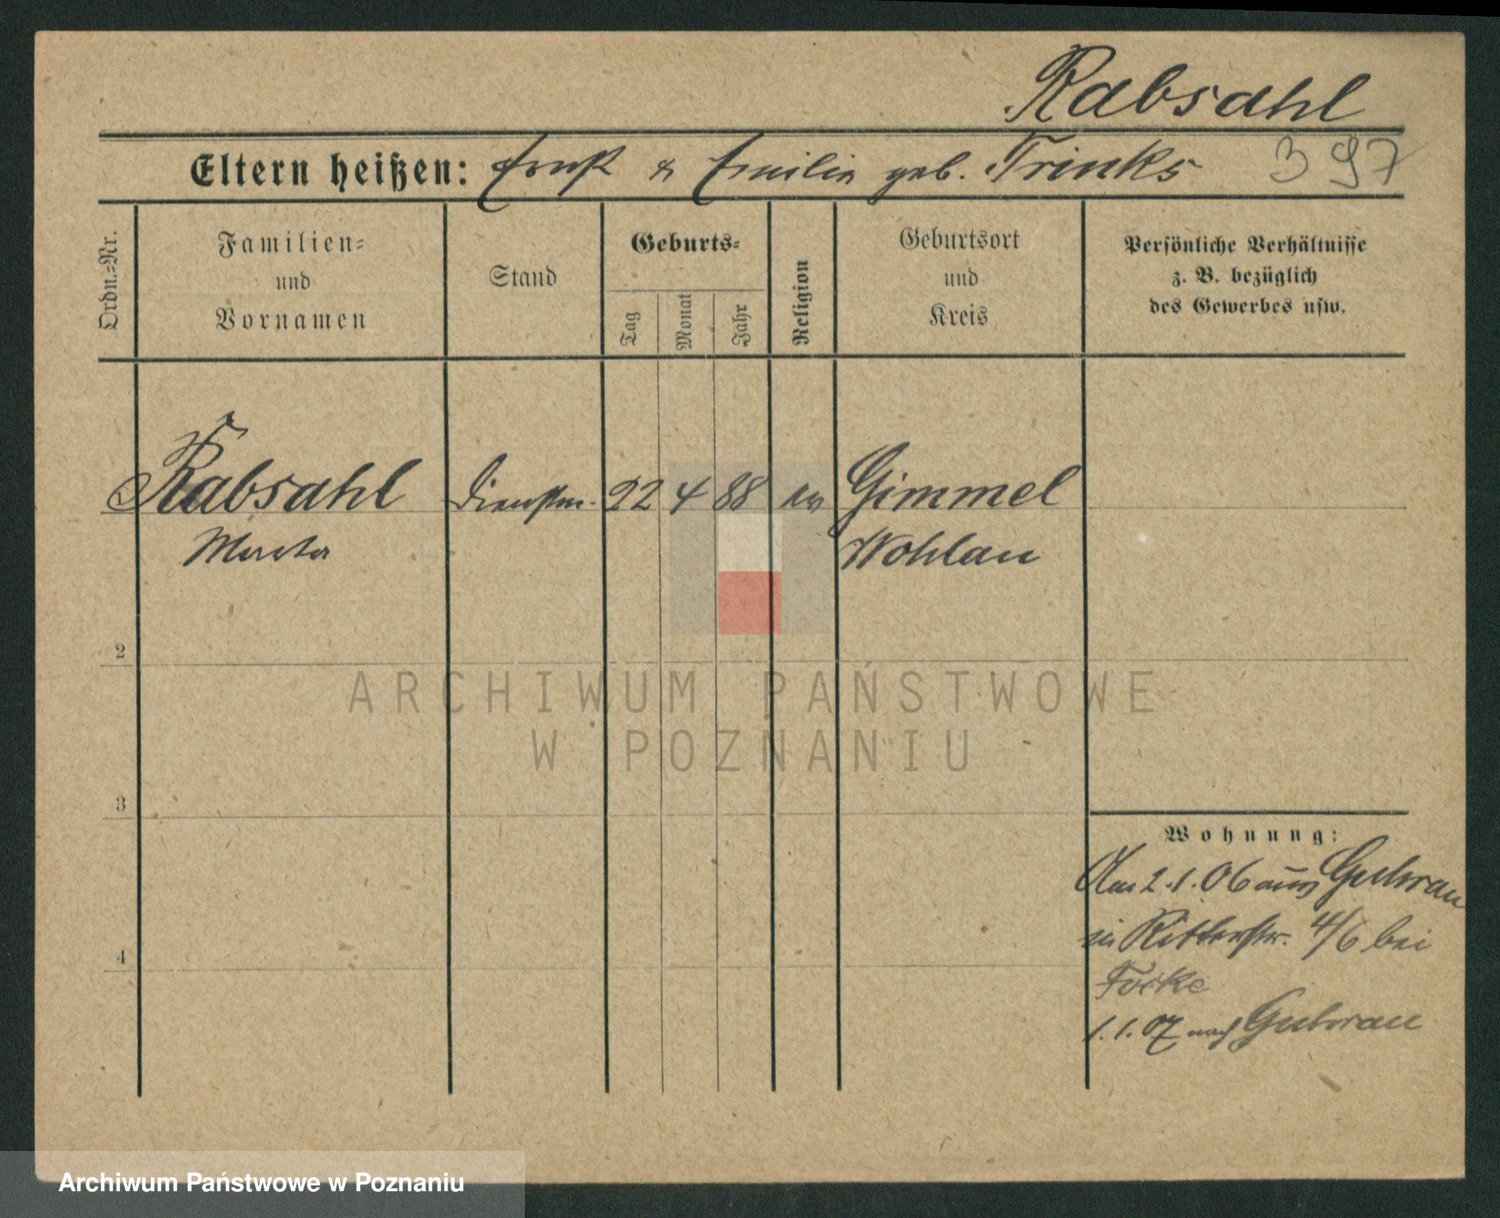 Rabsahl
Eltern heißen: Ernst & Emilie geb. Trinks 397
Ordn.-Nr.
Familien-
und
Vornamen
Stand
Geburts-
Tag
Monat
Jahr
Religion
Geburtsort
und
Kreis
Persönliche Verhältnisse
z. B. bezüglich
des Gewerbes usw.
Rabsahl Dienstm. 22 4 88 ev Gimmel
Martha Wohlau
2
ARCHIWUM PAŃSTWOWE
W POZNANIU
3
Wohnung:
Am 2.1.06 aus Guhrau
in Ritterstr. 4/6 bei
4
1.1.07 nach Guhrau
Archiwum Państwowe w Poznaniu